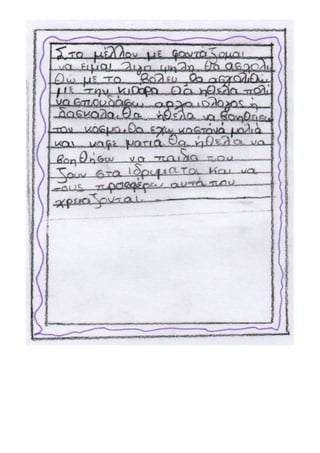 Στο μέλλον με φαντάζομαι
να ειμαι λιγο ψηλη θα ασχολη
θώ με το βολευ θα ασχοληθώ
με την κιθάρα θά ήθελα πολύ
να σπουδάσω αρχαιολογος ή
δασκαλα. θα ήθελα να βοηθήσω
τον κοσμο. θα εχω καστανά μαλιά
και καφε ματια θα ήθελα να
βοηθήσω να παιδα που
ζουν στα ιδρυματα και να
τους προσφέρω αυτά που
χρειαζονται.